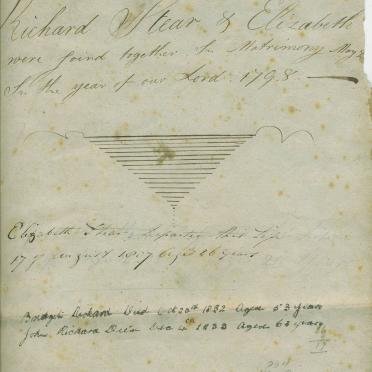 Richard Stear & Elizabeth
were joind together In Matrimony May
In the year of our Lord 1798
Elizabeth Departed this Life
17 of August 1857 aged 86 years
Richard Died Oct 20th 1832 Aged 53 years
John Richard Died Dec 4th 1833 Aged 63 years